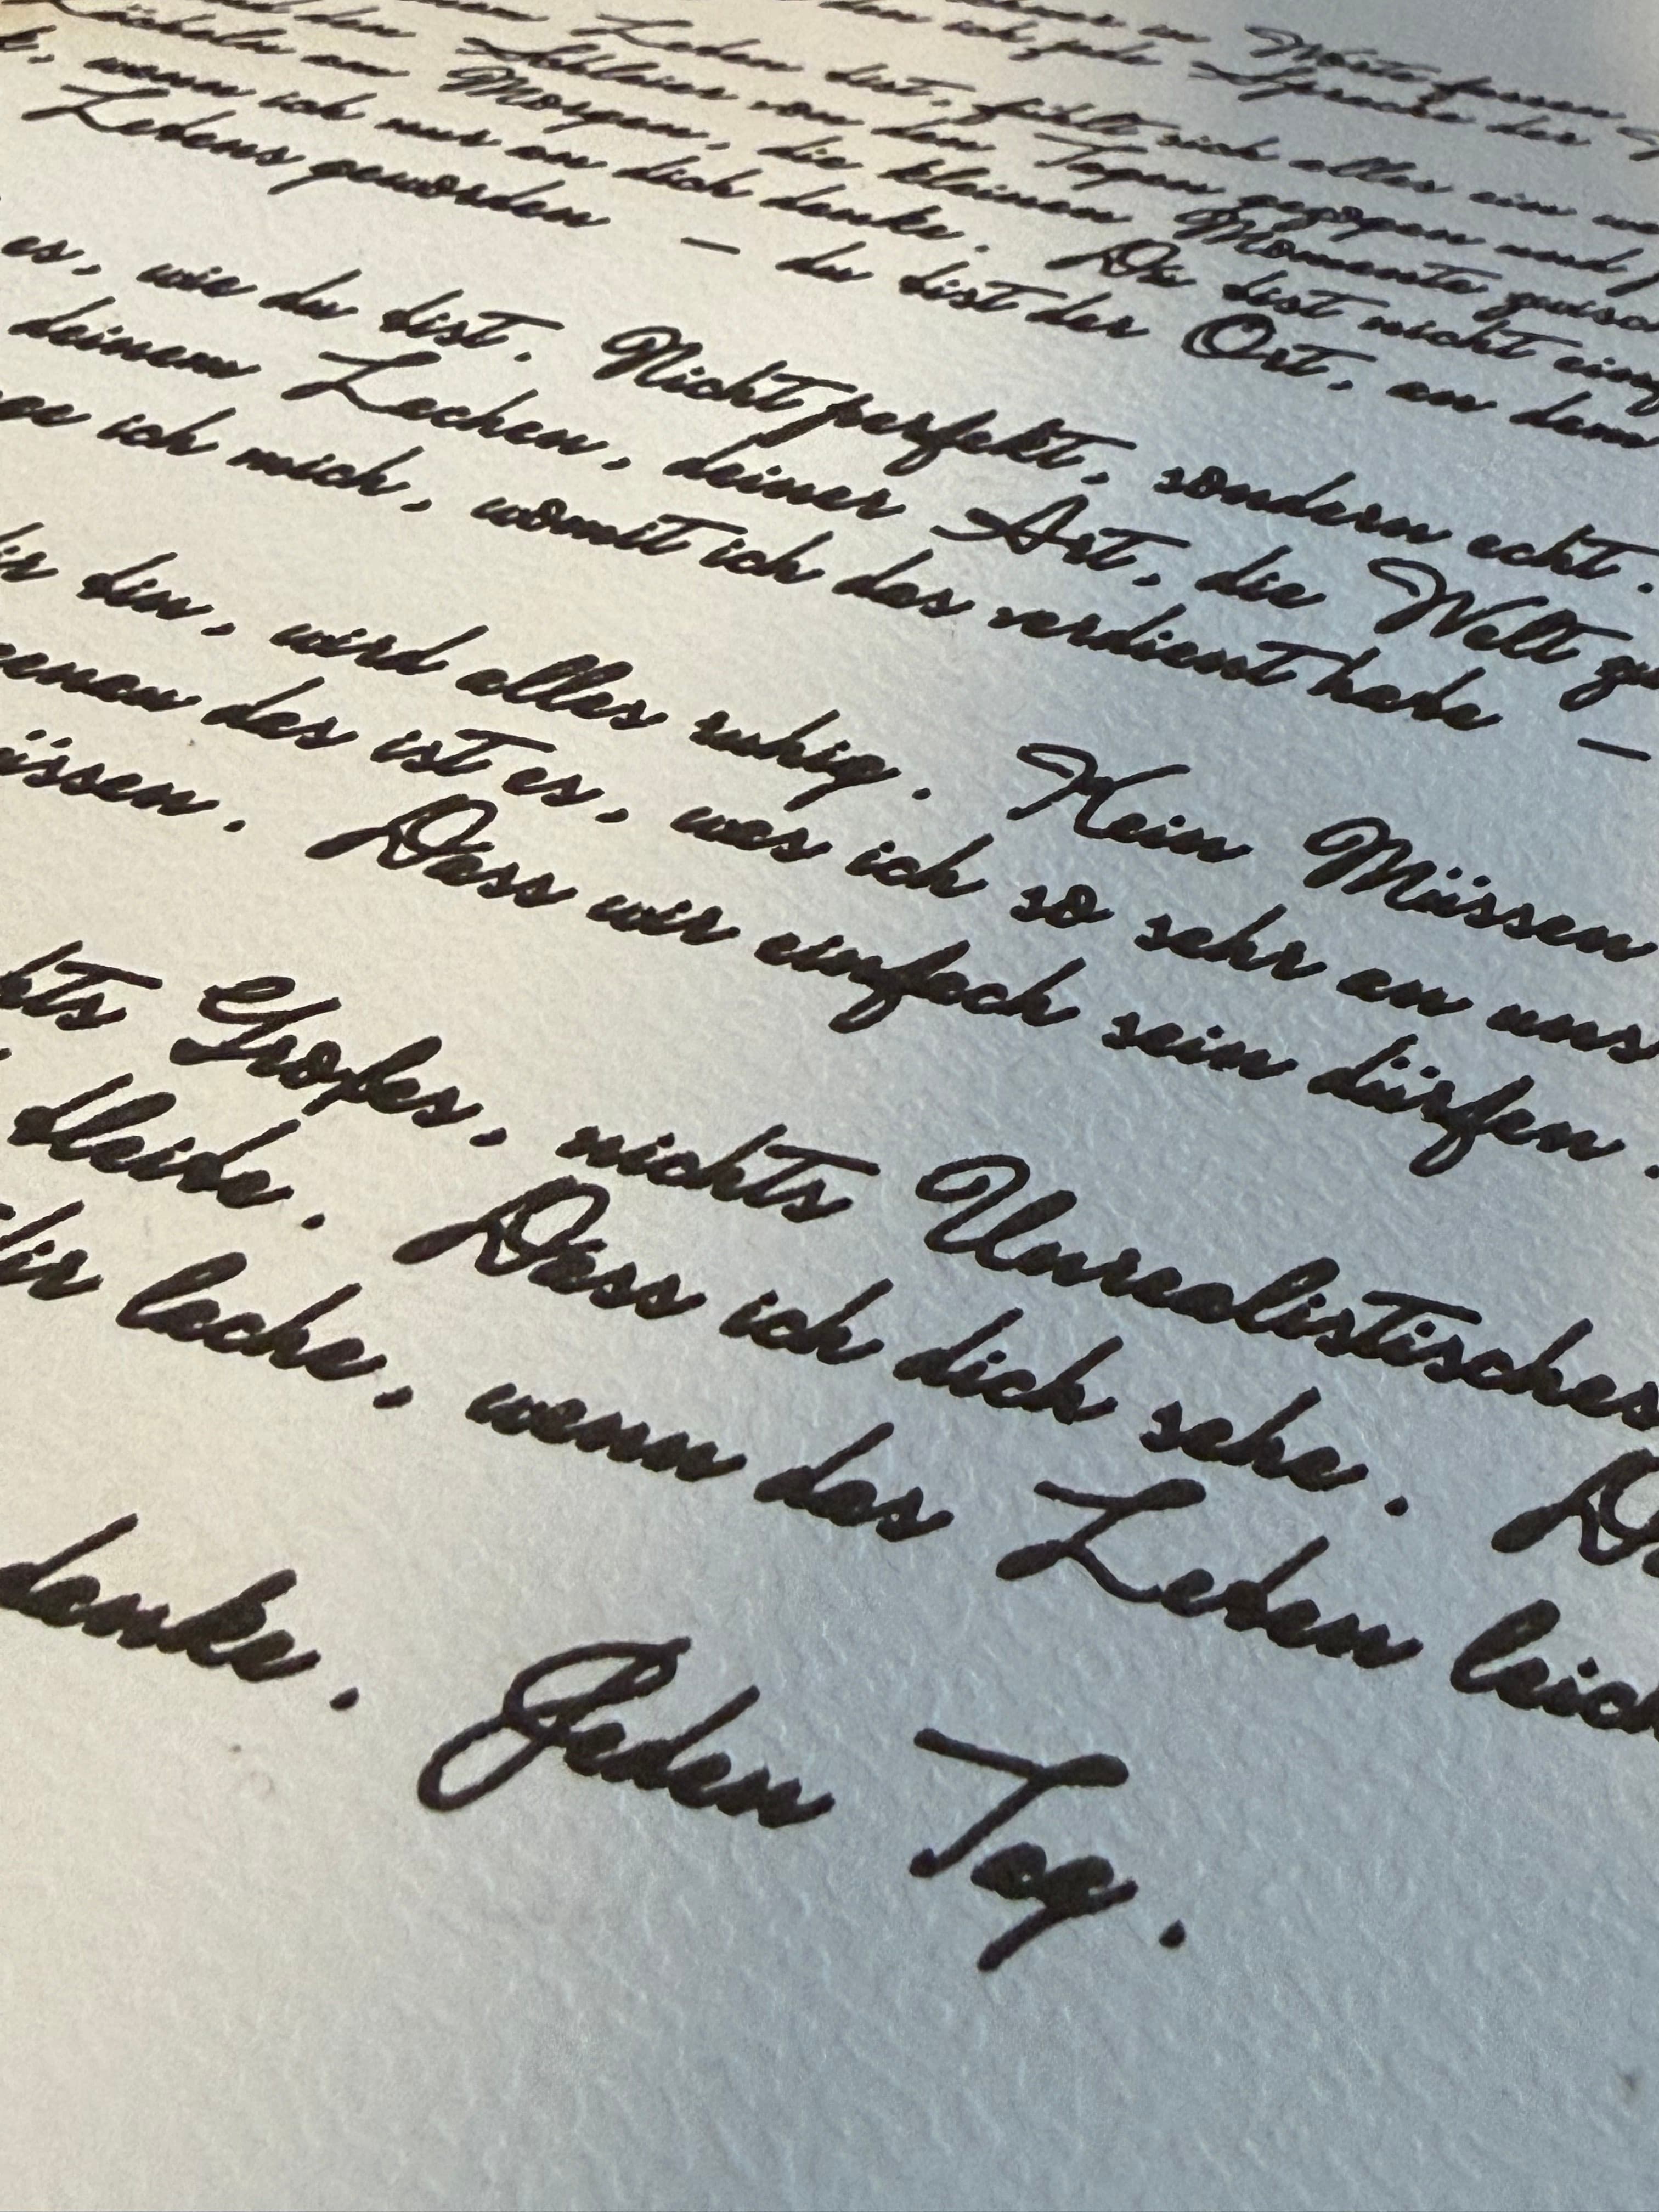 in Worte fassen
den ich jede Sprache der
Leben bist, fühlt sich alles ein
den Schleier von den Tagen gezogen und
Lächeln am Morgen, die kleinen Momente
wenn ich nur an dich denke. Du bist nicht
Lebens geworden – du bist der Ort, an dem
es, wie du bist. Nicht perfekt, sondern echt.
deinem Lachen, deiner Art, die Welt
ich mich, womit ich das verdient habe –
bin, wird alles ruhig. Kein Müssen
das ist es, was ich so sehr an uns
üssen. Dass wir einfach sein dürfen.
hts Großes, nichts Unrealistisches
bleibe. Dass ich dich sehe. D
dir lache, wenn das Leben leich
denke. Jeden Tag.